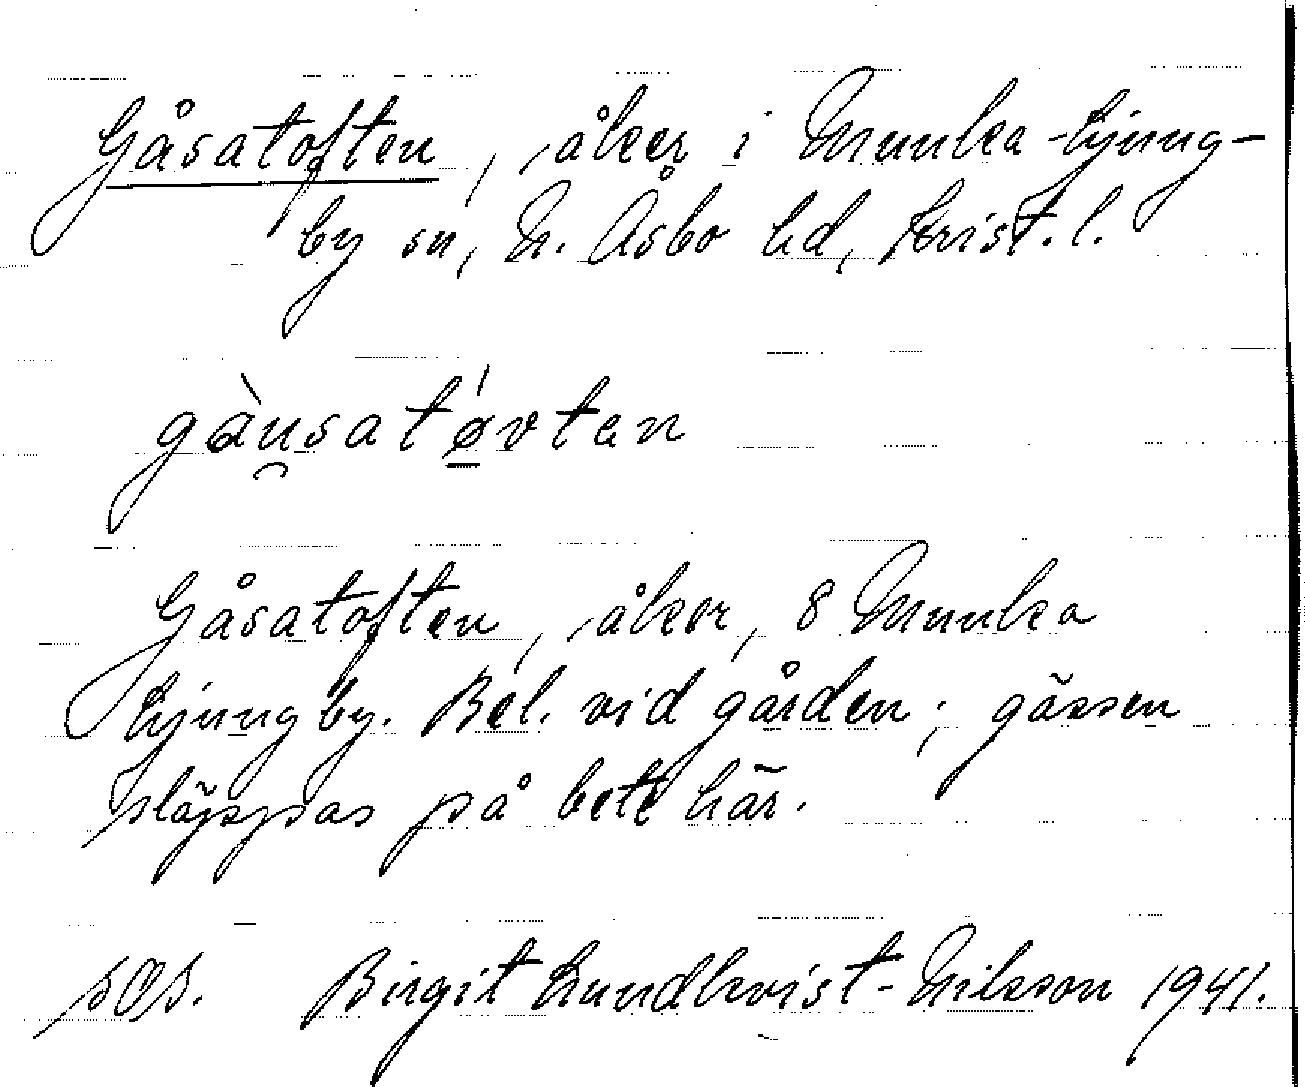 Gåsatoften, åker i Munka-Ljung-
by sn, N. Åsbo hd, Krist. l.
gàu̯satǿ̱vtan
Gåsatoften, åker, 8 Munka
Ljungby. Bel. vid gården; gässen
släppas på bete här.
Birgit Lundkvist-Nilsson 1941.